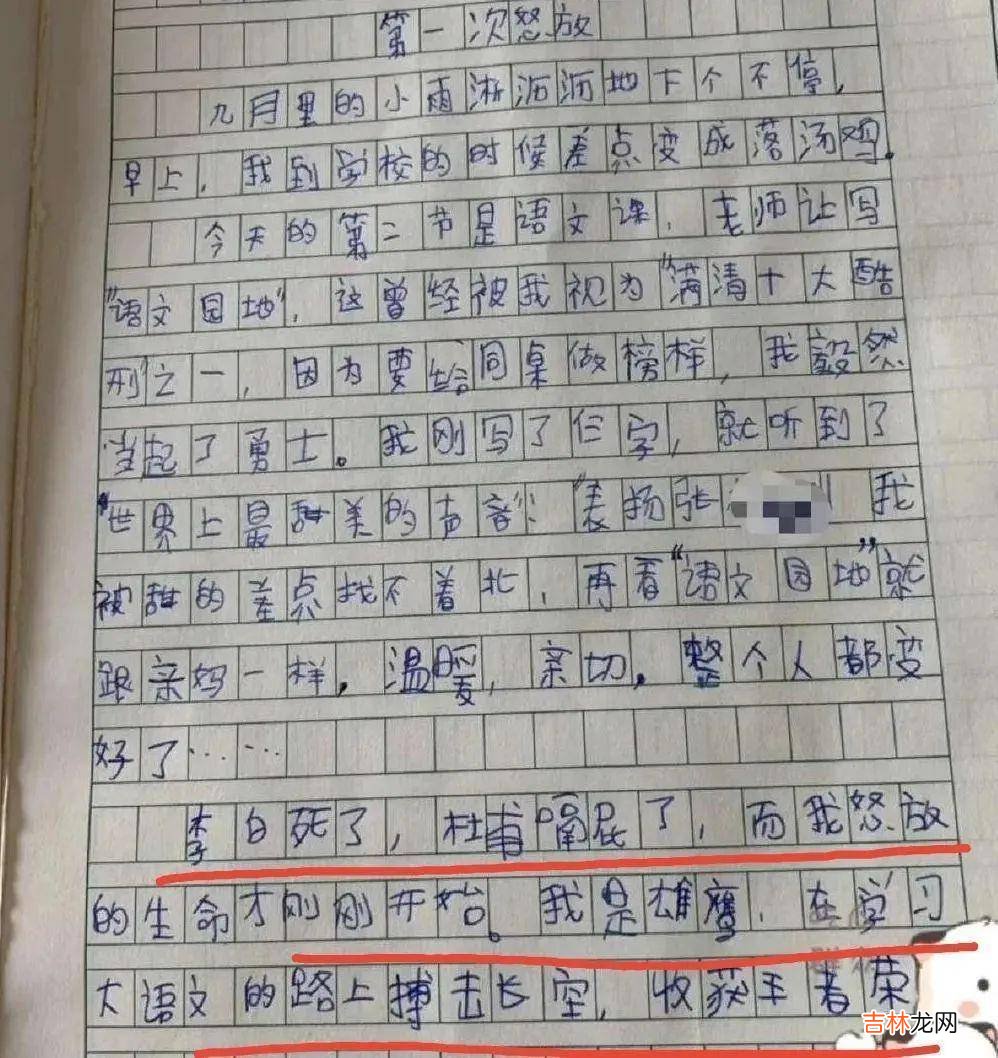 第一次怒放
九月里的小雨淅沥沥地下个不停,
早上,我到学校的时候差点变成落汤鸡.
今天的第二节是语文课,老师让写
"语文园地",这曾经被我视为"满清十大酷
刑"之一,因为要给同桌做榜样,我毅然
当起了勇士。我刚写了仨字,就听到了
"世界上最甜美的声音":"表扬张 我
被甜的差点找不着北,再看"语文园地"就
跟亲妈一样,温暖,亲切.整个人都变
好了……
李白死了,杜甫嗝屁了,而我怒放
的生命才刚刚开始。我是雄鹰,在学习
大语文的路上搏击长空,收获王者荣
吉林龙网